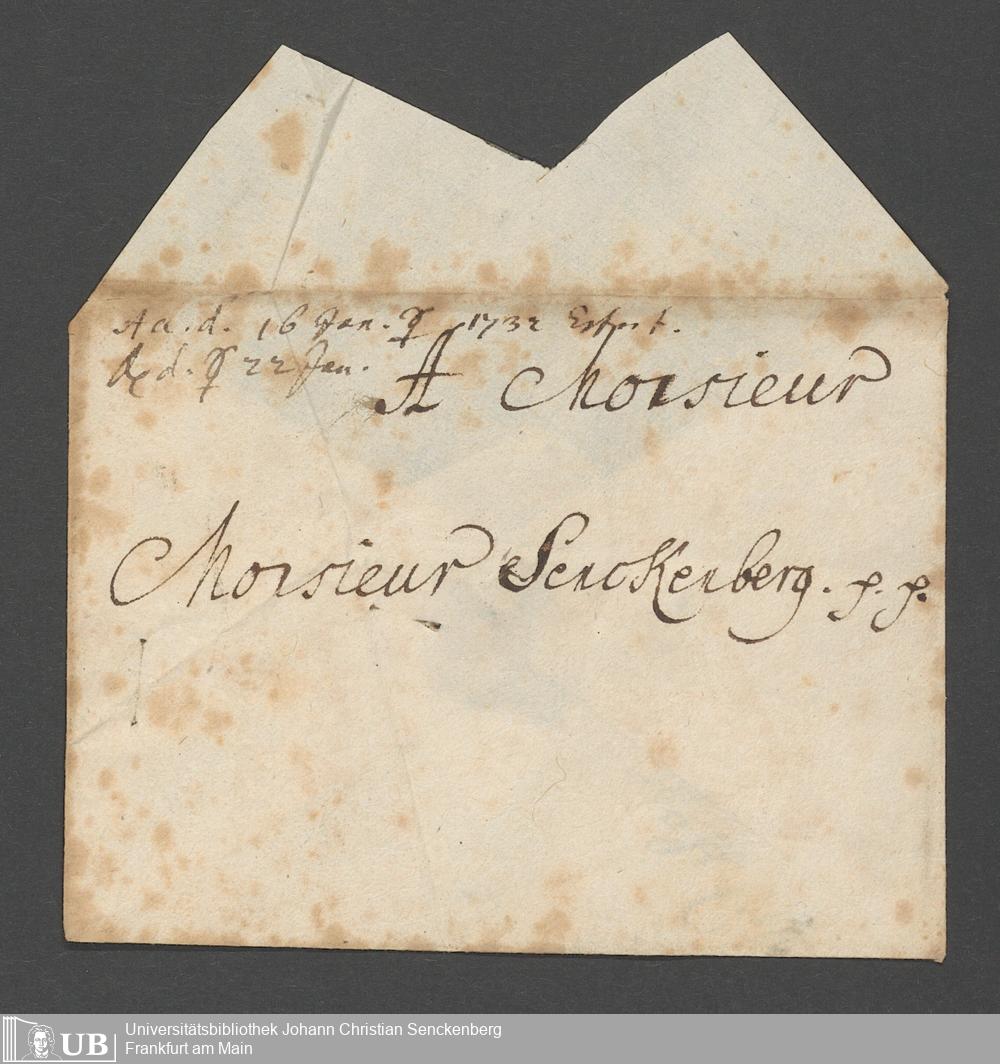 A a. d. 16 Jan. ☿ 1732
d. 22 Jan.
A Monsieur
Monsieur Senckenberg. p. p.
UB
Universitätsbibliothek Johann Christian Senckenberg
Frankfurt am Main